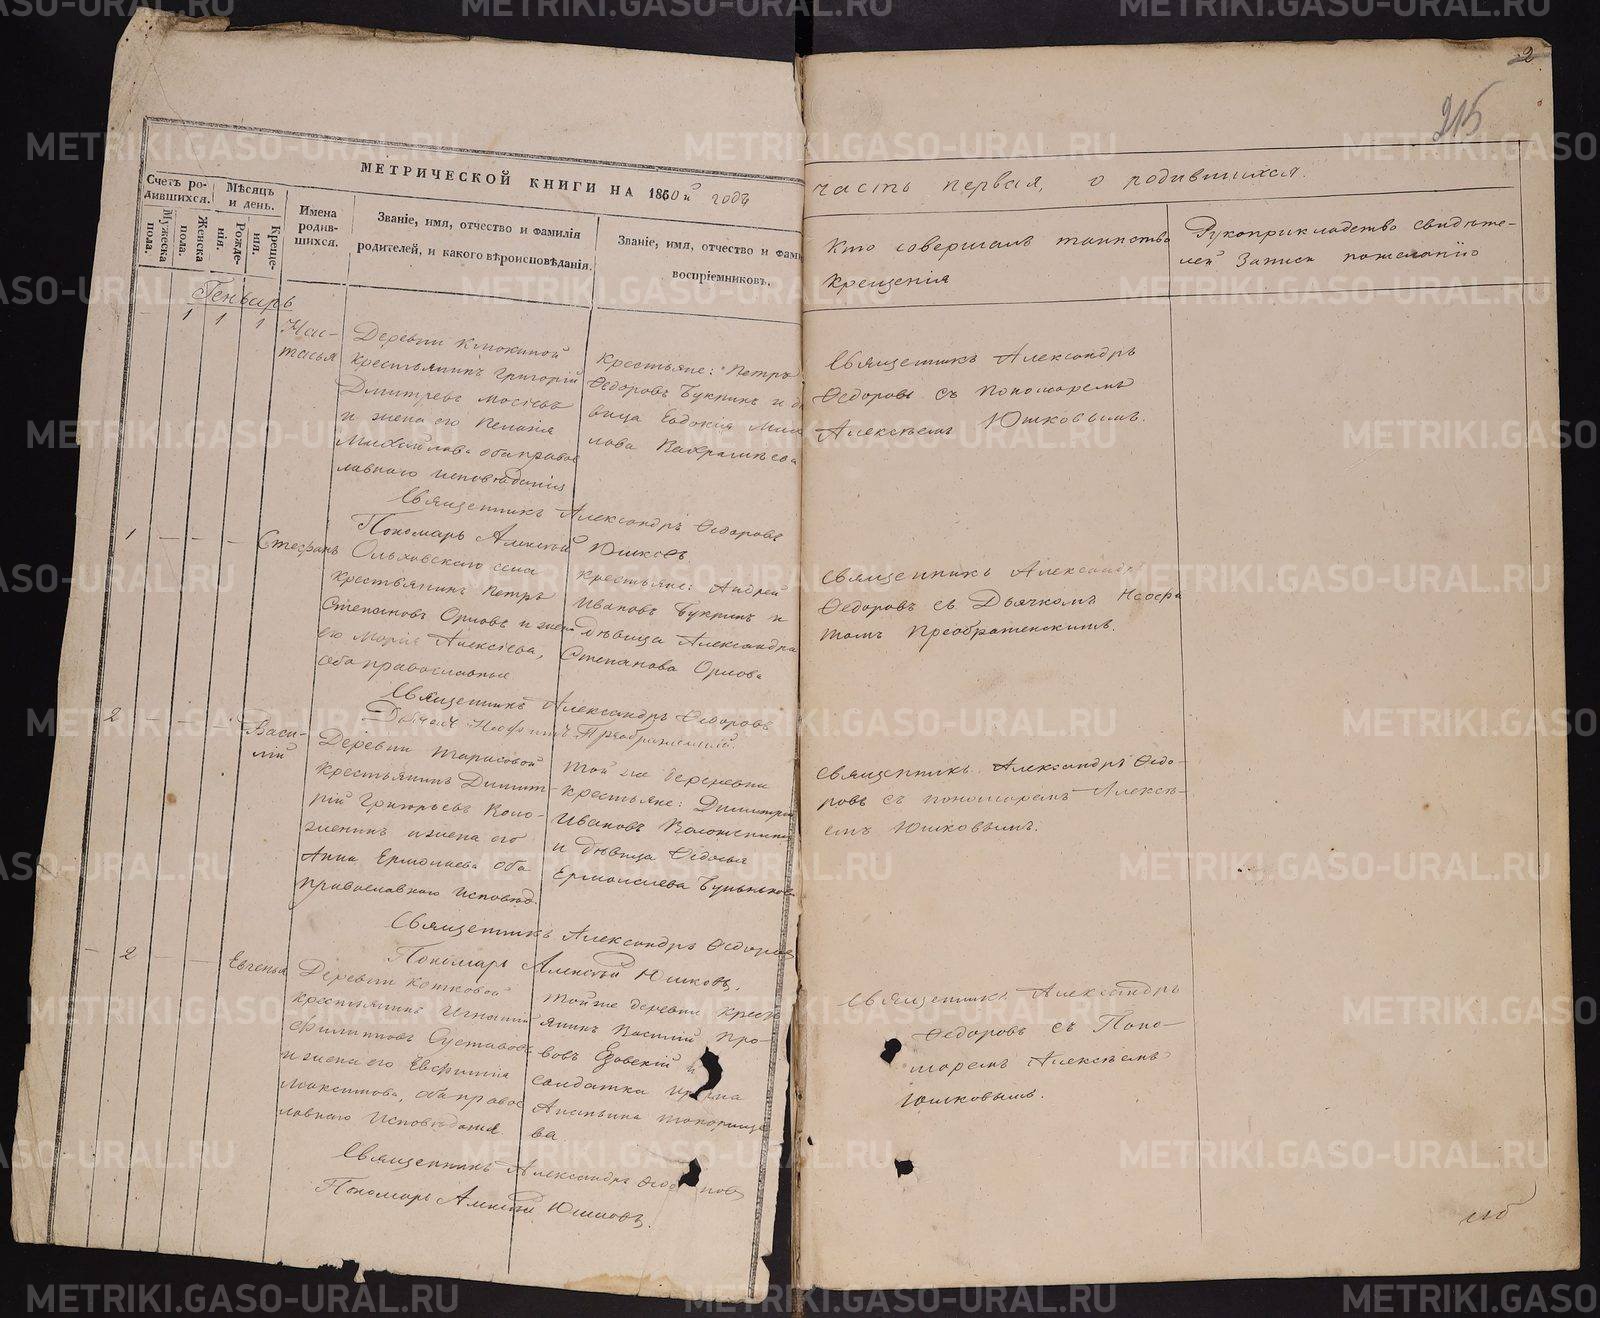 2
215
МЕТРИЧЕСКОЙ КНИГИ НА 1860й годъ
часть первая, о родившихся.
Счетъ родившихся.
Мужеска пола.
Женска пола.
Мѣсяцъ и день.
Рожденія.
Крещенія.
Имена родившихся.
Званіе, имя, отчество и фамилія
родителей, и какого вѣроисповѣданія.
Званіе, имя, отчество и фами
воспріемниковъ.
Кто совершалъ таинство
крещенія
Рукоприкладство свидѣте-
лей записи по желанію
Генварь
1 1 1
Нас-
тасья
Деревни Клюкиной
крестьянинъ Григорій
Дмитревъ
и жена его Пелагія
Михайлова оба правос
лавнаго исповѣданія
Крестьяне: Петръ
Ѳедоровъ Букринъ и дѣ
вица Евдокия
лова
Священникъ Александръ
Ѳедоровъ съ Пономаремъ
Алексѣемъ Юшковымъ.
Священникъ Александръ Ѳедоровъ
Пономарь Алексѣй Юшковъ
1 — — —
Стефанъ
Ольховскаго села
крестьянинъ Петръ
Степановъ Орловъ и жена
его Марія Алексѣева,
оба православные
крестьяне: Андрей
Ивановъ Букринъ и
Дѣвица Александра
Степанова Орлова
Священникъ Александръ
Ѳедоровъ съ Дьячкомъ Неофи
томъ Преображенскимъ.
Священникъ Александръ Ѳедоровъ
Дьячекъ Неофитъ Преображенскій.
2 — — —
Васи-
лій
Деревни Тарасовой
крестьянинъ Димит-
рій Григорьевъ Коло-
женинъ и жена его
Анна Ермолаева оба
православнаго исповѣд.
Той же деревни
крестьяне: Димитрій
Ивановъ
и дѣвица Ѳедосья
Ермолаева
Священникъ Александръ Ѳедо-
ровъ съ пономаремъ Алексѣ-
емъ Юшковымъ.
Священникъ Александръ Ѳедоровъ
Пономарь Алексѣй Юшковъ.
— 2 — —
Евгенья
Деревни Кошковой
крестьянинъ Игнатій
Филиповъ Суставовъ
и жена его Евфимія
Максимова, оба правос
лавнаго исповѣданія.
Той же деревни крестья
янинъ Василій Про-
вовъ и
солдатка
Ананьина Топорище
ва
Священникъ Александръ
Ѳедоровъ съ Поно-
маремъ Алексѣемъ
Юшковымъ.
Священникъ Александръ
Пономарь Алексѣй Юшковъ.
METRIKI.GASO-URAL.RU